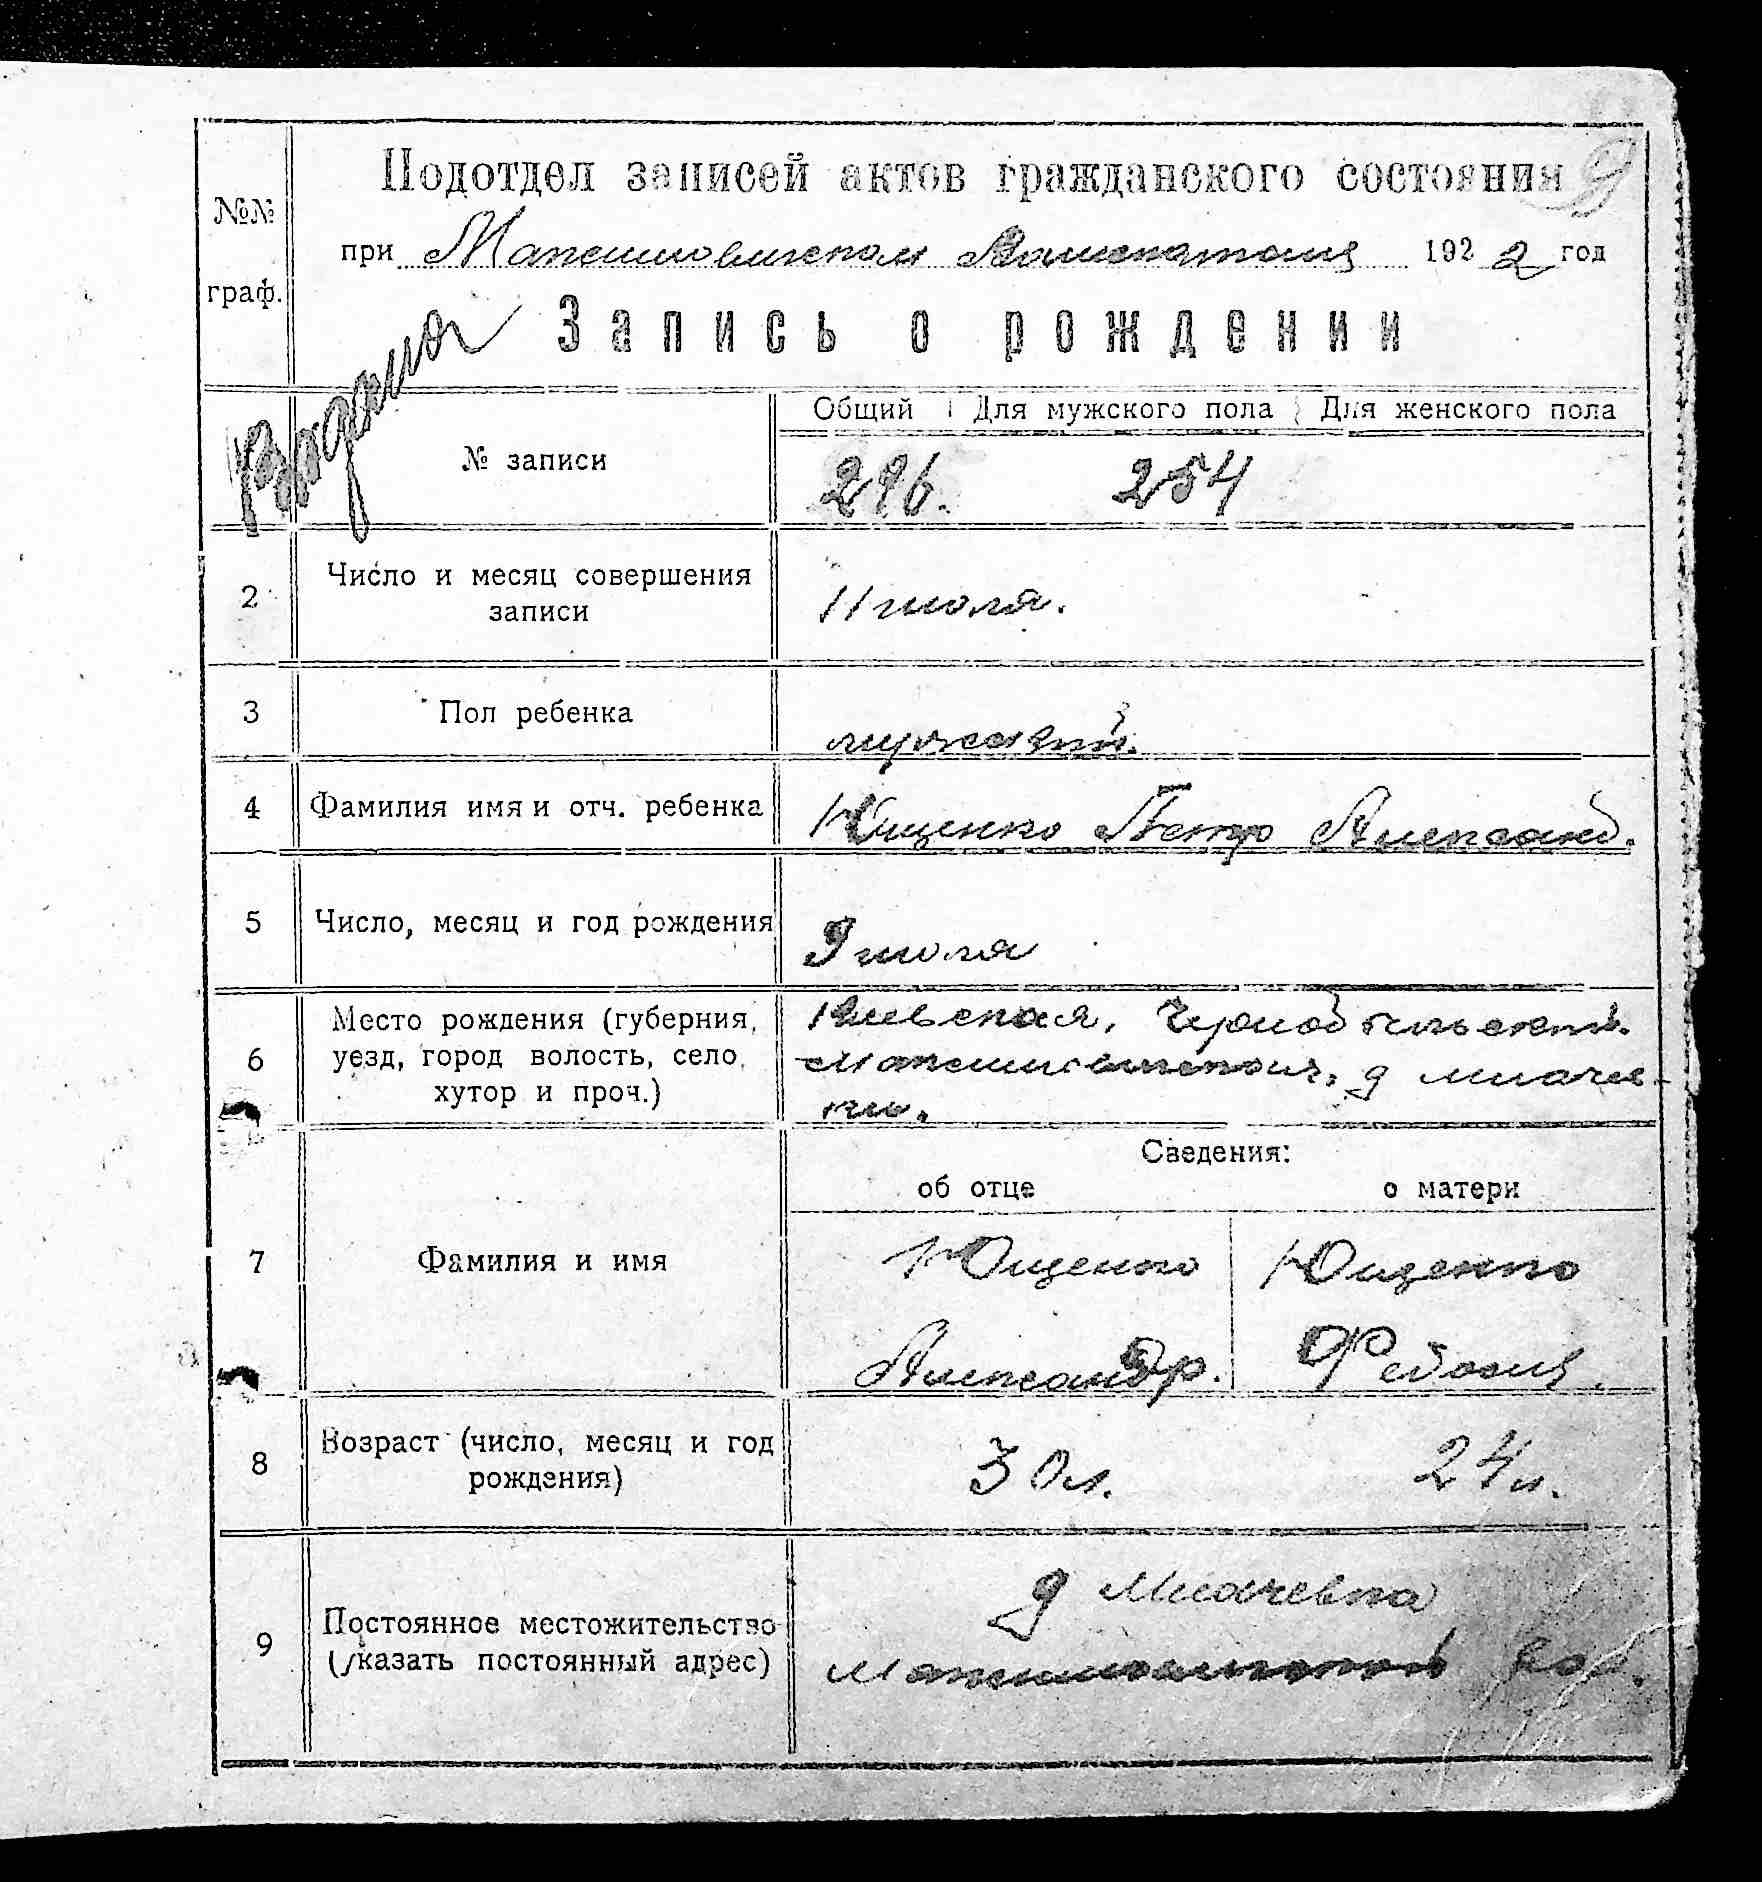 №№ граф.
Подотдел записей актов гражданского состояния
при Максимовичском 1922 год
Выдана
Запись о рождении
Общий Для мужского пола Для женского пола
№ записи 296. 254
2 Число и месяц совершения записи
11 июля.
3 Пол ребенка
мужский.
4 Фамилия имя и отч. ребенка
Ющенко Петр Александ.
5 Число, месяц и год рождения
9 июля
6 Место рождения (губерния,
уезд, город волость, село,
хутор и проч.)
Киевская, Чернобыльский.
Максимовичской, д
ки.
Сведения:
об отце о матери
7 Фамилия и имя
Ющенко Ющенко
Александр. Федосия.
8 Возраст (число, месяц и год
рождения)
30 л. 24 л.
9 Постоянное местожительство
(указать постоянный адрес)
д
Максимовичской вол.